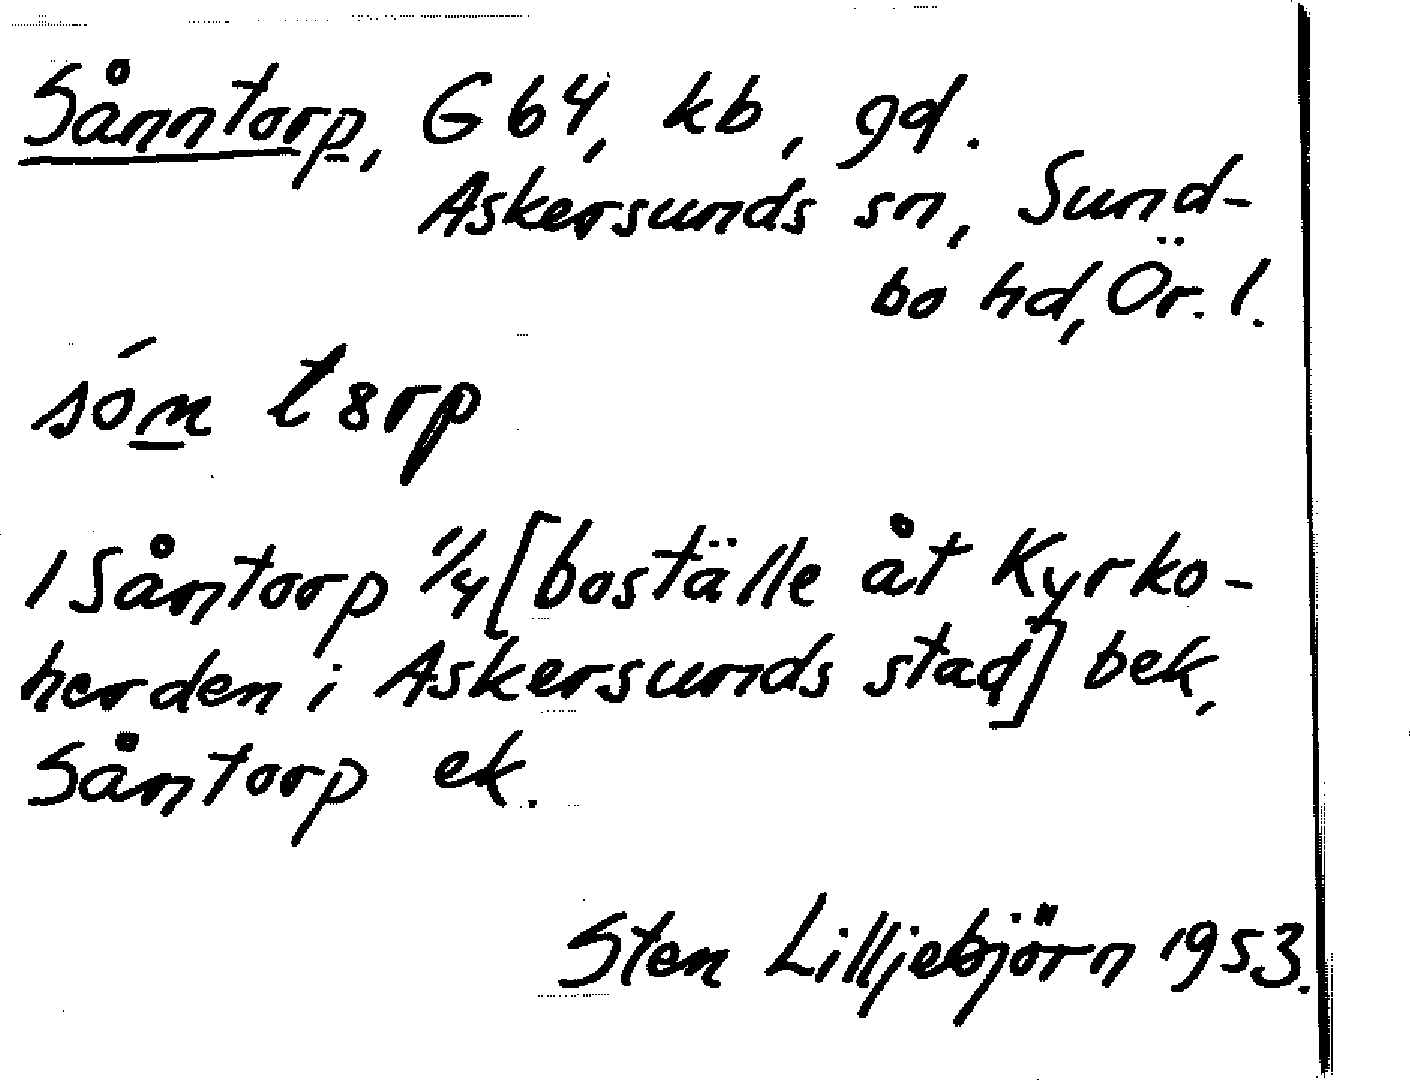 Sånntorp, G 64, kb, gd.
Askersunds sn, Sund-
bo hd, Ör. l.
són t8rp
1 Såntorp 1/4 [boställe åt Kyrko-
herden i Askersunds stad] bek,
Såntorp ek.
Sten Lilljebjörn 1953.